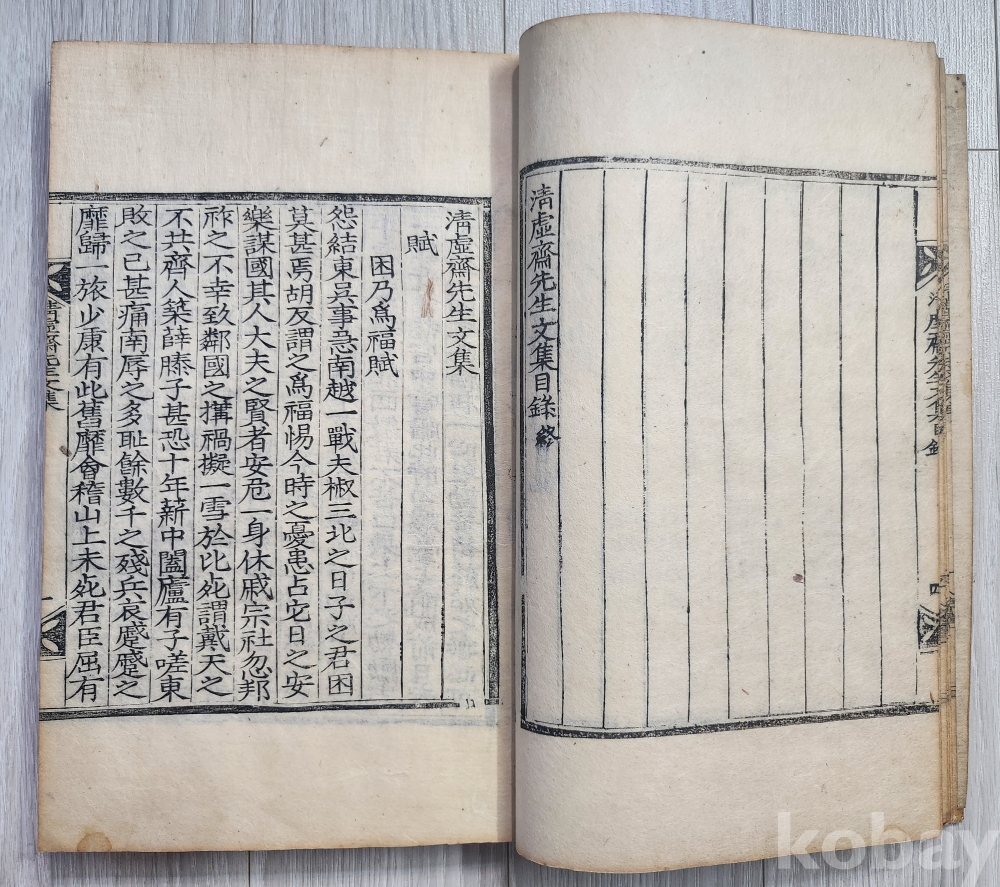 清虛齋先生文集目錄終
清虛齋先生文集目錄
四
清虛齋先生文集
賦
困乃爲福賦
怨結東吳事急南越一戰夫椒三北之日子之君困
莫甚焉胡反謂之爲福惕今時之憂患占它日之安
樂謀國其人大夫之賢者安危一身休戚宗社忽邦
祚之不幸致鄰國之搆禍擬一雪於比死謂戴天之
不共齊人築薛滕子甚恐十年薪中闔廬有子嗟東
敗之已甚痛南辱之多恥餘數千之殘兵哀蹙蹙之
靡歸一旅少康有此舊靡會稽山上未死君臣屈有
清虛齋先生文集
一
kobay